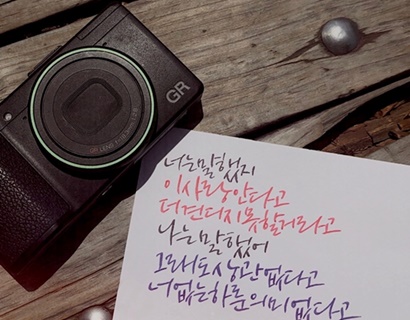 GR
GR LENS
너는 말했지
이 사랑 안다고
더 견디지 못할거라고
나는 말했어
그래도 상관 없다고
너 없는 하루 의미 없다고